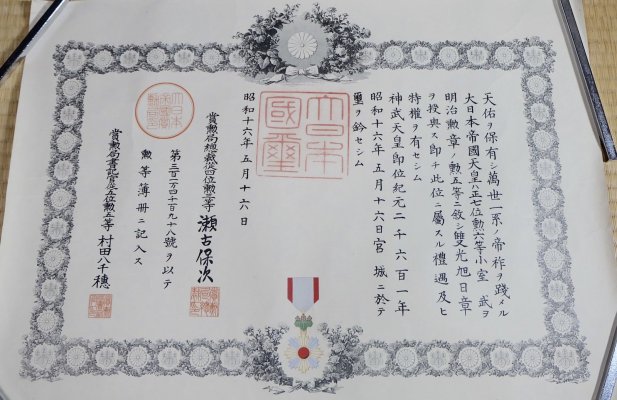 天佑ヲ保有シ萬世一系ノ帝祚ヲ踐メル
大日本帝國天皇ハ正七位勲六等小室　武ヲ
明治勲章ノ勲五等ニ敍シ雙光旭日章
ヲ授與ス即チ此位ニ屬スル禮遇及ヒ
特權ヲ有セシム
神武天皇即位紀元二千六百一年
昭和十六年五月十六日宮　城ニ於テ
璽ヲ鈐セシム
大日本國璽
昭和十六年五月十六日
賞勲局總裁從四位勲三等　瀬古保次
第三百二十四千百九十八號ヲ以テ
勲等簿册ニ記入ス
賞勲局書記官從五位勲五等　村田八千穗